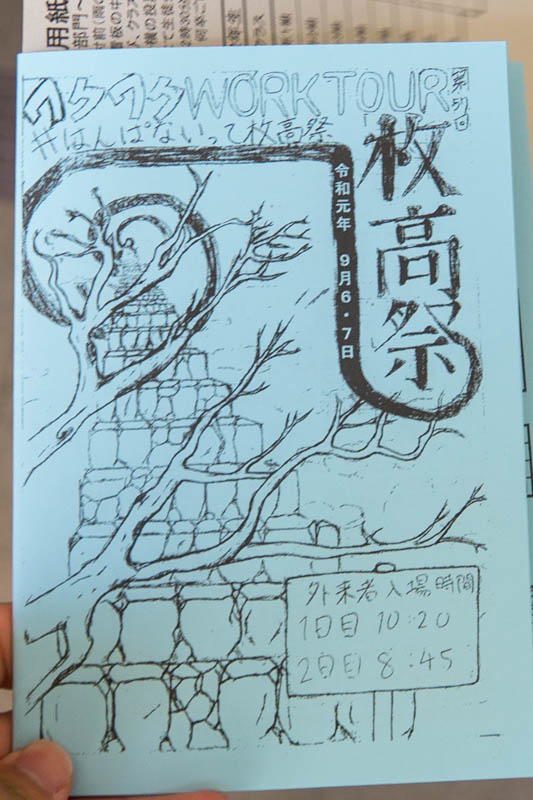 ワクワクWORKTOUR
第57回
#はんぱないって枚高祭
枚高祭
令和元年 9月6・7日
外来者入場時間
1日目 10:20
2日目 8:45
用紙